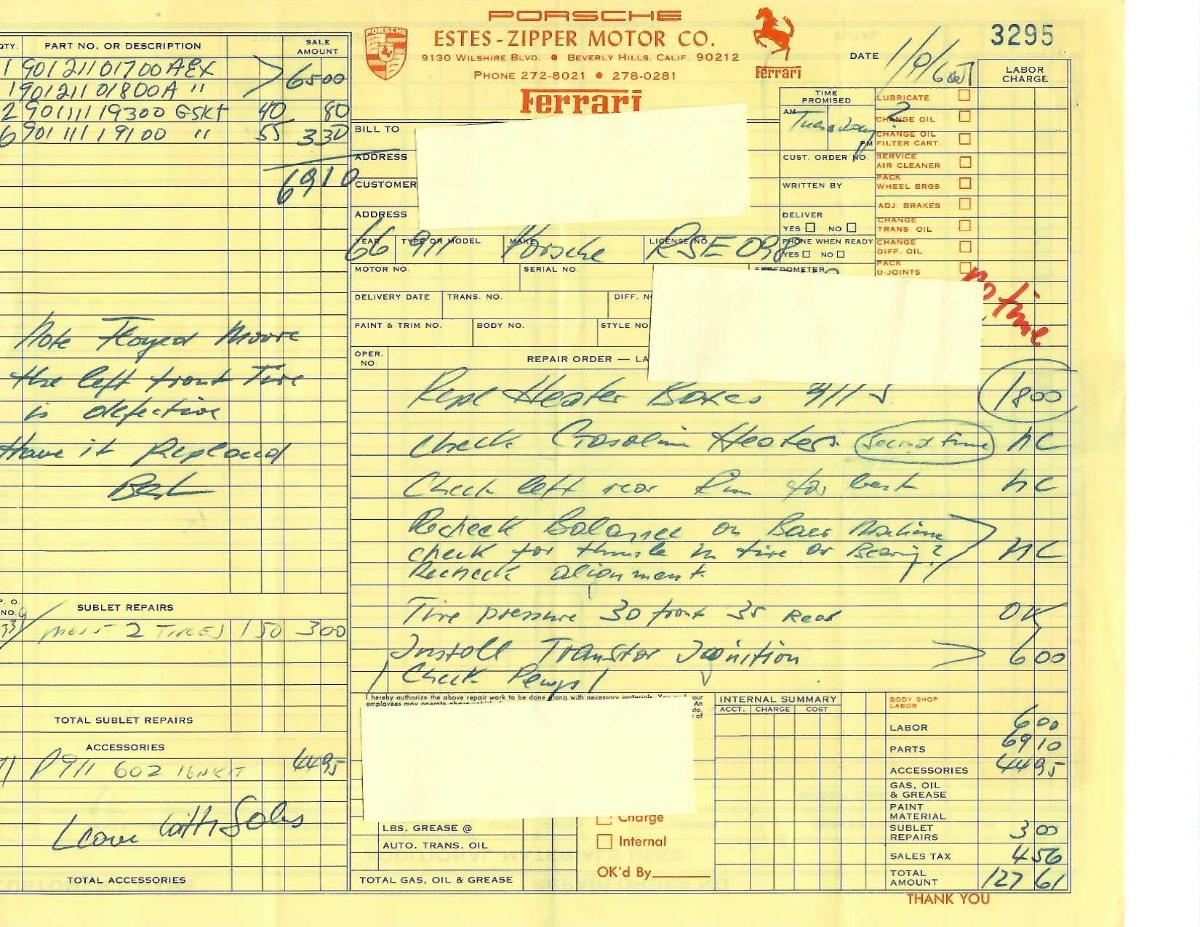 PORSCHE
ESTES-ZIPPER MOTOR CO.
9130 WILSHIRE BLVD. • BEVERLY HILLS, CALIF. 90212
PHONE 272-8021 • 278-0281
Ferrari
PORSCHE
Ferrari
DATE
3295
QTY. PART NO. OR DESCRIPTION SALE AMOUNT
1 901 211 017 00 AEX
1 901 211 018 00 A " 65 00
2 901 111 193 00 GSKT 40 80
6 901 111 191 00 " 55 3 30
69 10
BILL TO
ADDRESS
CUSTOMER
ADDRESS
YEAR TYPE OR MODEL MAKE LICENSE NO.
66 911 Porsche RSE 098
MOTOR NO. SERIAL NO. SPEEDOMETER
DELIVERY DATE TRANS. NO. DIFF. N
PAINT & TRIM NO. BODY NO. STYLE NO
TIME PROMISED
AM Tuesday PM
CUST. ORDER NO.
WRITTEN BY
DELIVER
YES NO
PHONE WHEN READY
YES NO
LABOR CHARGE
LUBRICATE
CHANGE OIL
CHANGE OIL FILTER CART.
SERVICE AIR CLEANER
PACK WHEEL BRGS.
ADJ. BRAKES
CHANGE TRANS. OIL
CHANGE DIFF. OIL
PACK U-JOINTS
no time
OPER. NO. REPAIR ORDER — LA
Repl Heater Boxes 911 S 18 00
Check Gasoline Heater (second time) NC
Check left rear Rim for bent NC
Recheck Balance on Baer Machine
check for thumb in tire or Bearing? NC
Recheck alignment.
Tire pressure 30 front 35 Rear OK
Install Transitor Iginition 6 00
Check Pewgs
Note Floyed Moore
the left front Tire
is defective
Have it Replaced
P. O. NO. SUBLET REPAIRS
MOUNT 2 TIRES 1 50 3 00
TOTAL SUBLET REPAIRS
ACCESSORIES
1 P911 602 IGN KIT 44 95
Leave with Sales
TOTAL ACCESSORIES
I hereby authorize the above repair work to be done along with necessary materials. You and your
employees may operate above
LBS. GREASE @
AUTO. TRANS. OIL
TOTAL GAS, OIL & GREASE
Charge
Internal
OK'd By
INTERNAL SUMMARY
ACCT. CHARGE COST
BODY SHOP LABOR
LABOR 6 00
PARTS 69 10
ACCESSORIES 44 95
GAS, OIL & GREASE
PAINT MATERIAL
SUBLET REPAIRS 3 00
SALES TAX 4 56
TOTAL AMOUNT 127 61
THANK YOU